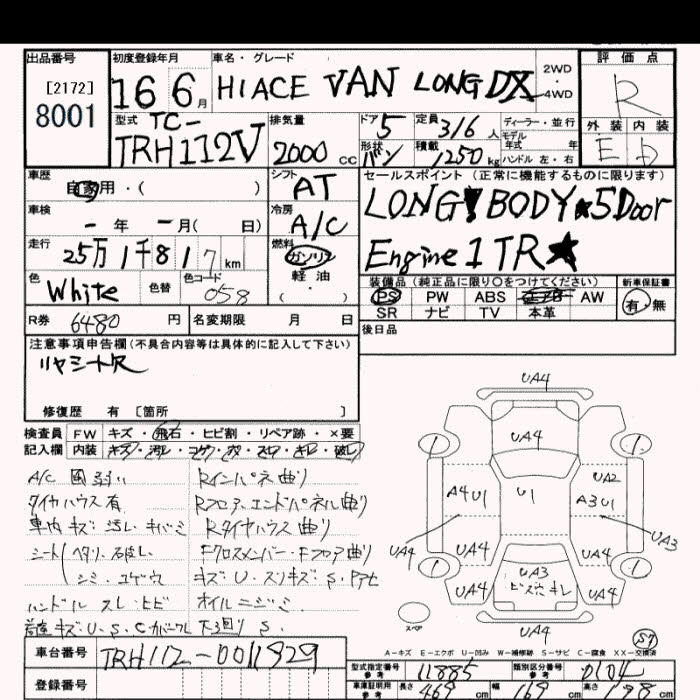 出品番号 初度登録年月 車名・グレード 評価点
[2172] 8001 16 6月 HIACE VAN LONG DX 2WD・4WD R
型式 排気量 ドア 定員 ディーラー・並行 外装 内装
TC-TRH112V 2000cc 5 3/6人 モデル年式 年 E D
形状 バン 積載 1250kg ハンドル 左・右
車歴 自家用・( ) シフト AT セールスポイント (正常に機能するものに限ります)
LONG BODY ★5Door
車検 -年 -月( 日) 冷房 A/C
Engine 1TR★
走行 25万1千817km 燃料 ガソリン 軽油 ( ・ )
装備品 (純正品に限り○をつけてください) 新車保証書
色 White 色替 色コード 058
PS PW ABS AW 有・無
SR ナビ TV 本革
R券 6480円 名変期限 月 日 後日品
注意事項申告欄(不具合内容等は具体的に記入して下さい)
リヤシート欠
修復歴 有 [箇所 ]
検査員 FW キズ・飛石・ヒビ割・リペア跡・×要
記入欄 内装 キズ・汚レ・コゲ・穴・スレ・キレ・破レ
A/C 風弱い Rインパネ曲り
タイヤハウス有 Rフロア.エンドパネル曲り
車内キズ・汚レ・ R タイヤハウス曲り
シート ヘタリ・破レ Fクロスメンバー・Fフロア曲り
シミ・コゲ キズ・U・スリキズ・S・
ハンドル スレ・ヒビ オイルニジミ
キズ・U・S・C 下回り S.
UA4
UA4
A4 U1 U1 UA2 A3 U1
UA4 UA3
UA4 UA4
UA3
UA4 キレ UA4
スペア UA4
57
A-キズ E-エクボ U-凹み W-補修跡 S-サビ C-腐食 XX-交換済
車台番号 TRH112-0011929 型式指定番号 参考 11885 類別区分番号 参考 0104
登録番号 車庫証明用 参考 長さ 469cm 幅 169cm 高さ 198cm